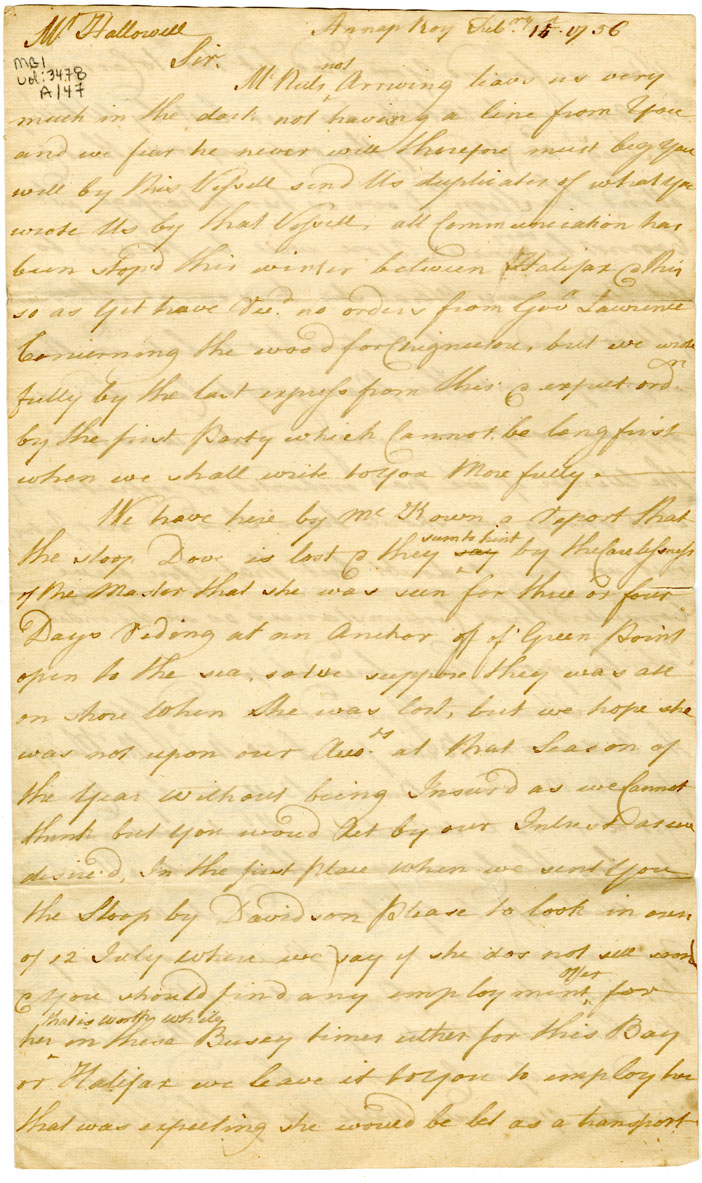 Mr Hallowell Annap Roy Febry 15 1756
MB1
Vol: 3478
A/47
Sir.
Mr Neils not Arriving leavs us very
much in the dark not having a line from You
and we fear he never will therefore must beg you
will by this Vessell send Us duplicates of what You
wrote Us by that Vessell, all Communication has
been stopd this winter between Halifax & this
so as Yet have Recd. no orders from Govr Lawrence
Concerning the wood for Chignectou, but we wrote
fully by the last express from this & expect ordrs
by the first Party which Cannot be long first
when we shall write to You More fully.
We have here by Mc Kown a report that
the sloop Dove is lost & they seem to hint say by the Carelessness
of the Master that she was seen for three or four
Days rideing at an Anchor off of Green Point
open to the sea, so we suppose they was all
on shore When She was lost, but we hope she
was not upon our Accots. at that Season of
the Year without being Insurd as we Cannot
think but You would Act by our Intrest as we
desired, In the first place When we sent You
the Sloop by Davidson Please to look in ours
of 12 July where we say if she dos not sell soon
& You should find any employment offer for
her that is worth while in these Busey times either for this Bay
or Halifax we leave it to You to employ her
that was expecting she would be let as a transport